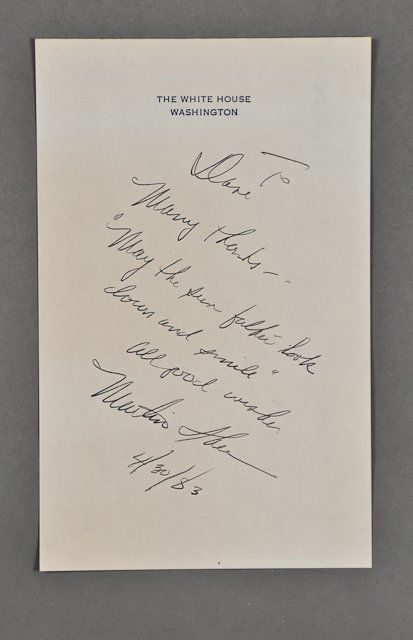 THE WHITE HOUSE
WASHINGTON
Dave To
Many thanks -
"May the sun father look
down and smile"
all good wishes
Martin Sheen
4/30/83